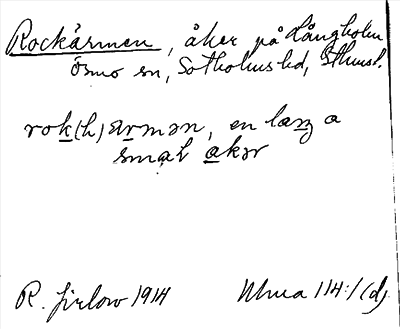 Rockärmen, åker på Långholm
Ösmo sn, Sotholms hd, Sthms l.
rok(h)ærmən, en laŋ a
smal akər
R. Jirlow 1914 Muua 114:1(d)